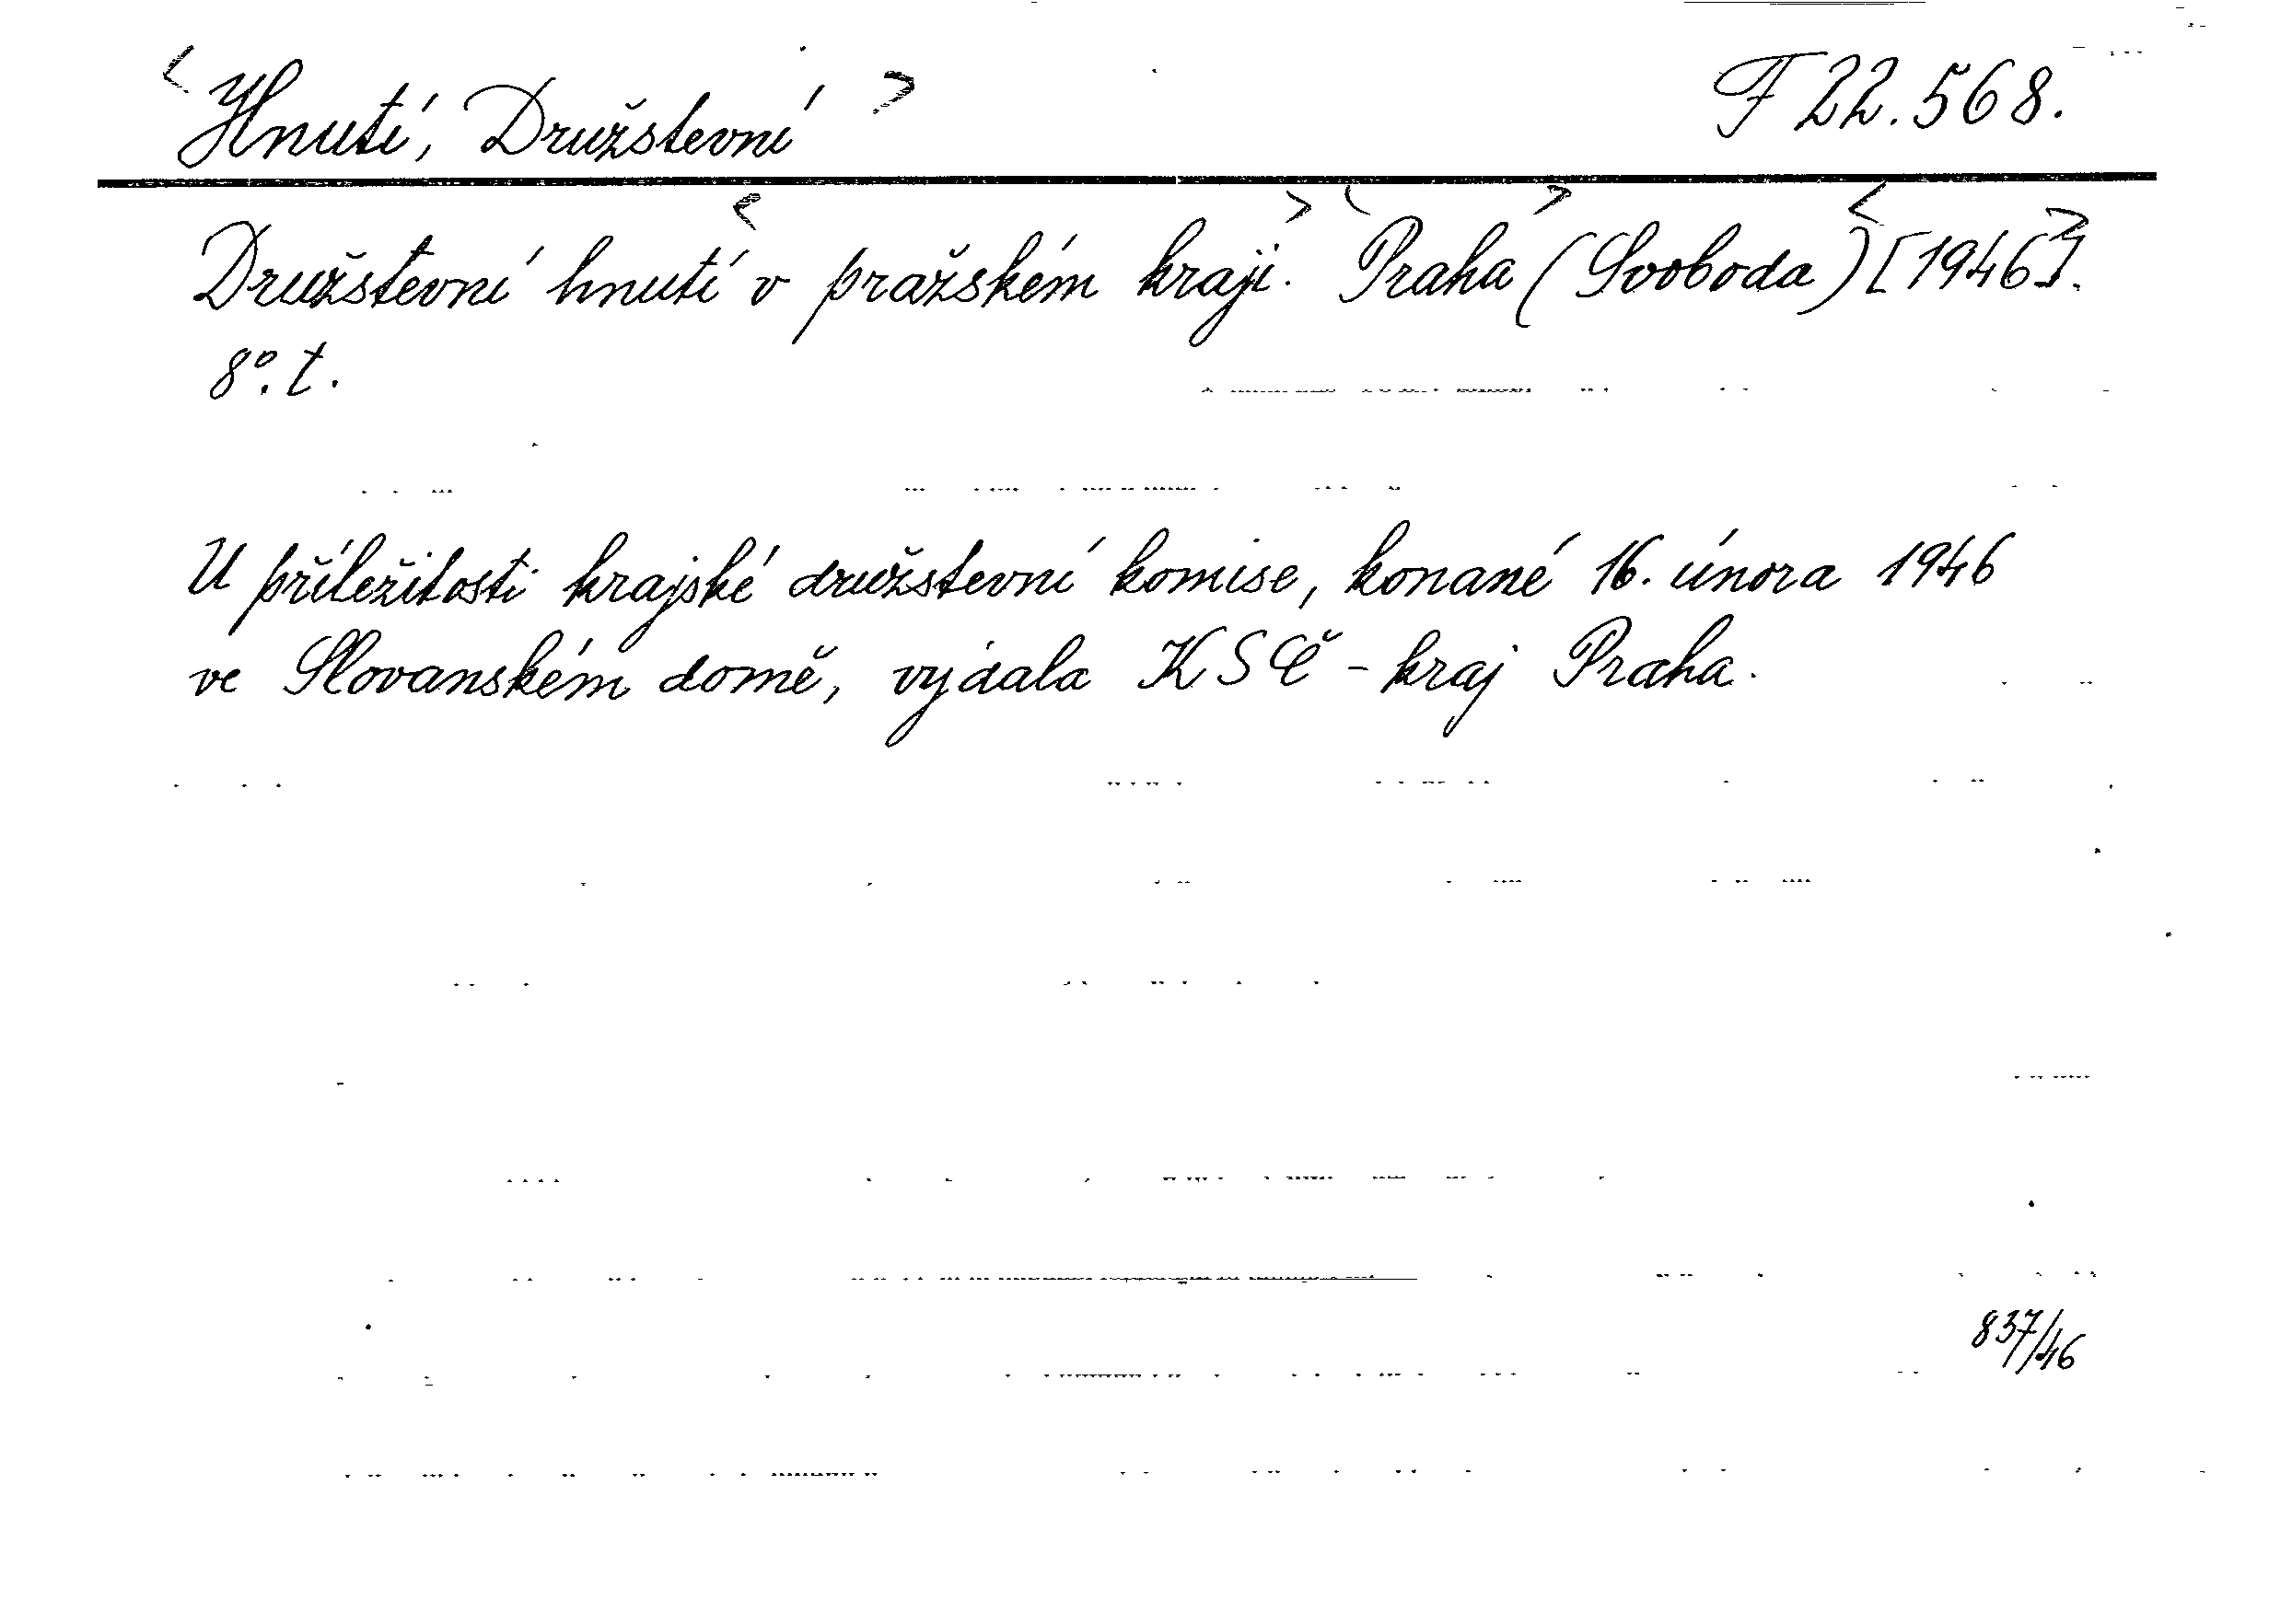 <Hnutí, Družstevní> F 22.568.
Družstevní hnutí <v pražském kraji.> <Praha> (Svoboda) <[1946]>.
8°. t.
U příležitosti krajské družstevní komise, konané 16. února 1946
ve Slovanském domě, vydala KSČ - kraj Praha.
837/46